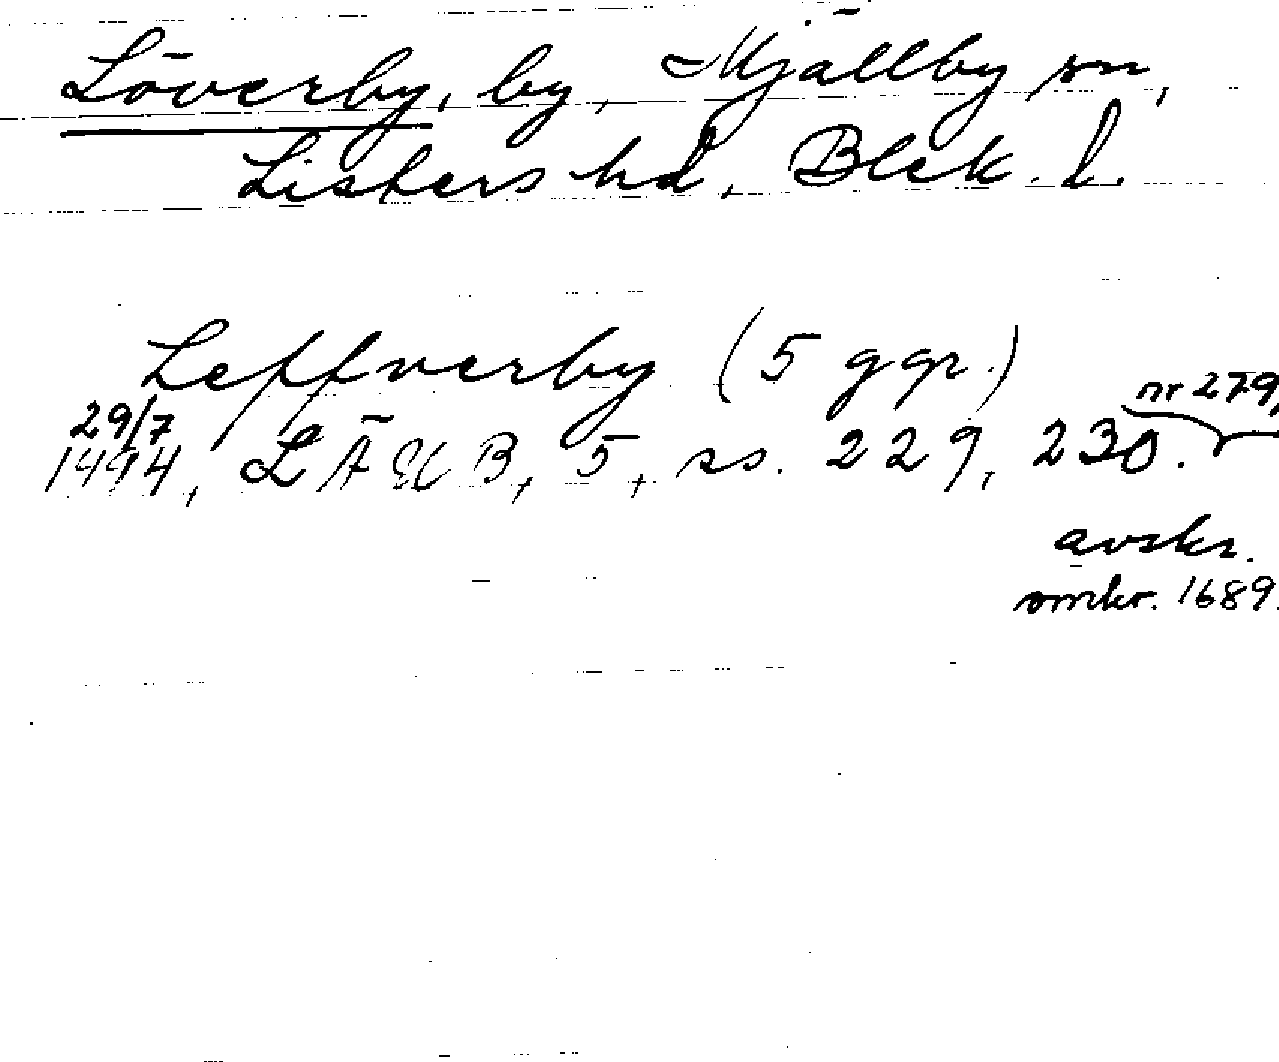 Löverby, by, Mjällby sn,
Listers hd, Blek. l.
Leffverby (5 ggr.)
nr 279,
29/7
1494, LÄUB, 5, ss. 229, 230.
avskr.
omkr. 1689.